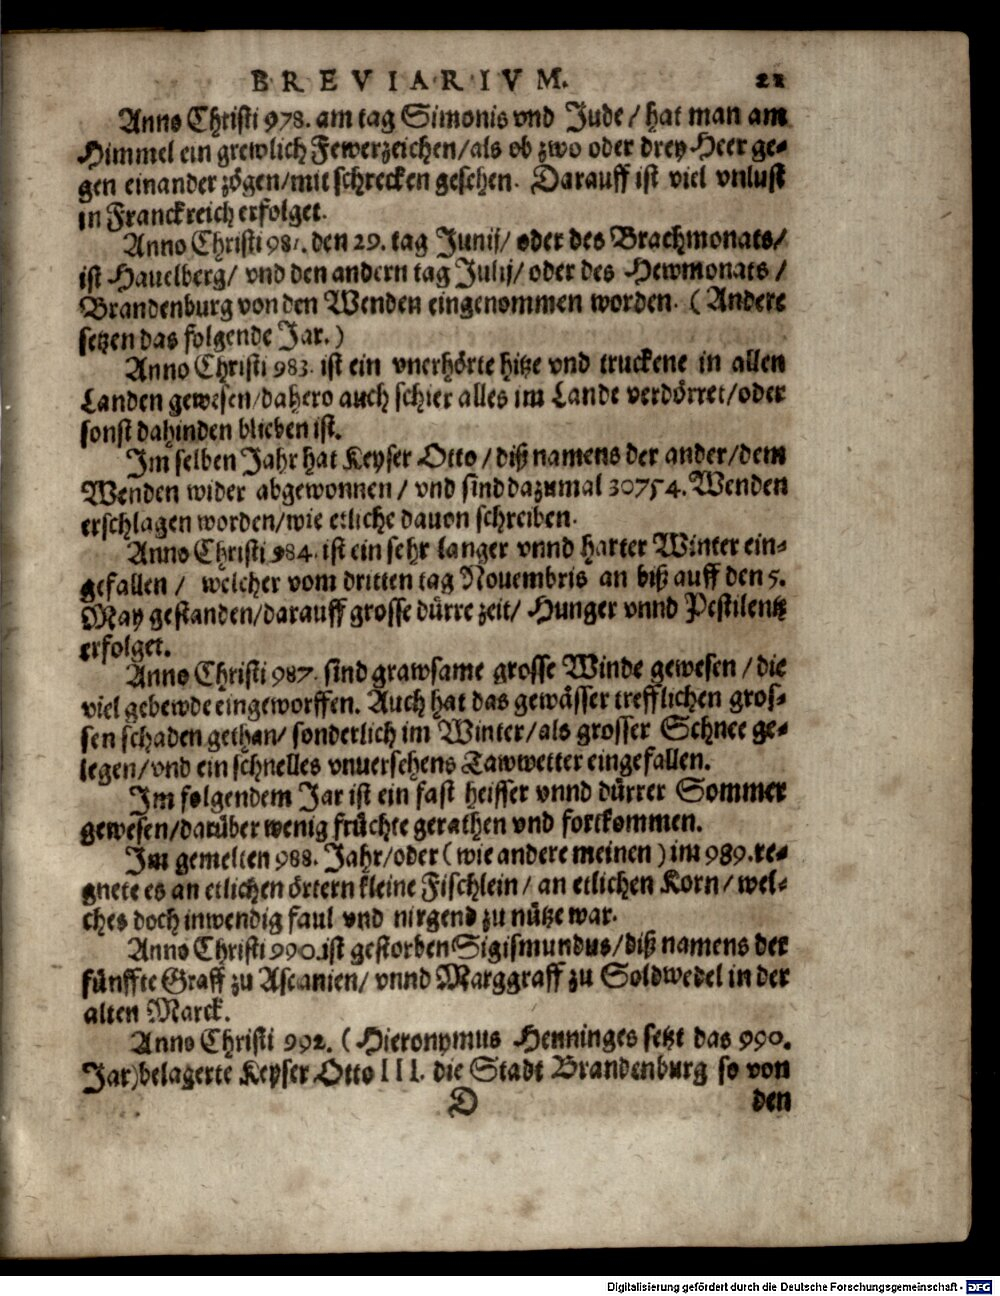 BREVIARIVM. 21
Anno Christi 978. am tag Simonis vnd Jude / hat man am
Himmel ein grewlich Fewerzeichen/als ob zwo oder drey Heer ge-
gen einander zögen/mit schrecken gesehen. Darauff ist viel vnlust
in Franckreich erfolget.
Anno Christi 981. den 29. tag Junij/ oder des Brachmonats/
ist Hauelberg/ vnd den andern tag Julij/ oder des Hewmonats /
Brandenburg von den Wenden eingenommen worden. (Andere
setzen das folgende Jar.)
Anno Christi 983. ist ein vnerhörte hitze vnd truckene in allen
Landen gewesen/dahero auch schier alles im Lande verdörret/oder
sonst dahinden blieben ist.
Im selben Jahr hat Keyser Otto / diß namens der ander/dem
Wenden wider abgewonnen / vnd sind dazumal 30754. Wenden
erschlagen worden/wie etliche dauon schreiben.
Anno Christi 984. ist ein sehr langer vnnd harter Winter ein-
gefallen / welcher vom dritten tag Nouembris an biß auff den 5.
May gestanden/darauff grosse dürre zeit/ Hunger vnnd Pestilentz
erfolget.
Anno Christi 987. sind grawsame grosse Winde gewesen / die
viel gebewde eingeworffen. Auch hat das gewässer trefflichen gros-
sen schaden gethan/ sonderlich im Winter/als grosser Schnee ge-
legen/vnd ein schnelles vnuersehens Tawwetter eingefallen.
Im folgendem Jar ist ein fast heisser vnnd dürrer Sommer
gewesen/darüber wenig früchte gerathen vnd fortkommen.
Im gemelten 988. Jahr/oder (wie andere meinen) im 989. re-
gnete es an etlichen örtern kleine Fischlein / an etlichen Korn / wel-
ches doch inwendig faul vnd nirgend zu nütze war.
Anno Christi 990. ist gestorben Sigismundus/diß namens der
fünffte Graff zu Ascanien/ vnnd Marggraff zu Soldwedel in der
alten Marck.
Anno Christi 992. (Hieronymus Henninges setzt das 990.
Jar)belagerte Keyser Otto III. die Stadt Brandenburg so von
D den
Digitalisierung gefördert durch die Deutsche Forschungsgemeinschaft - DFG